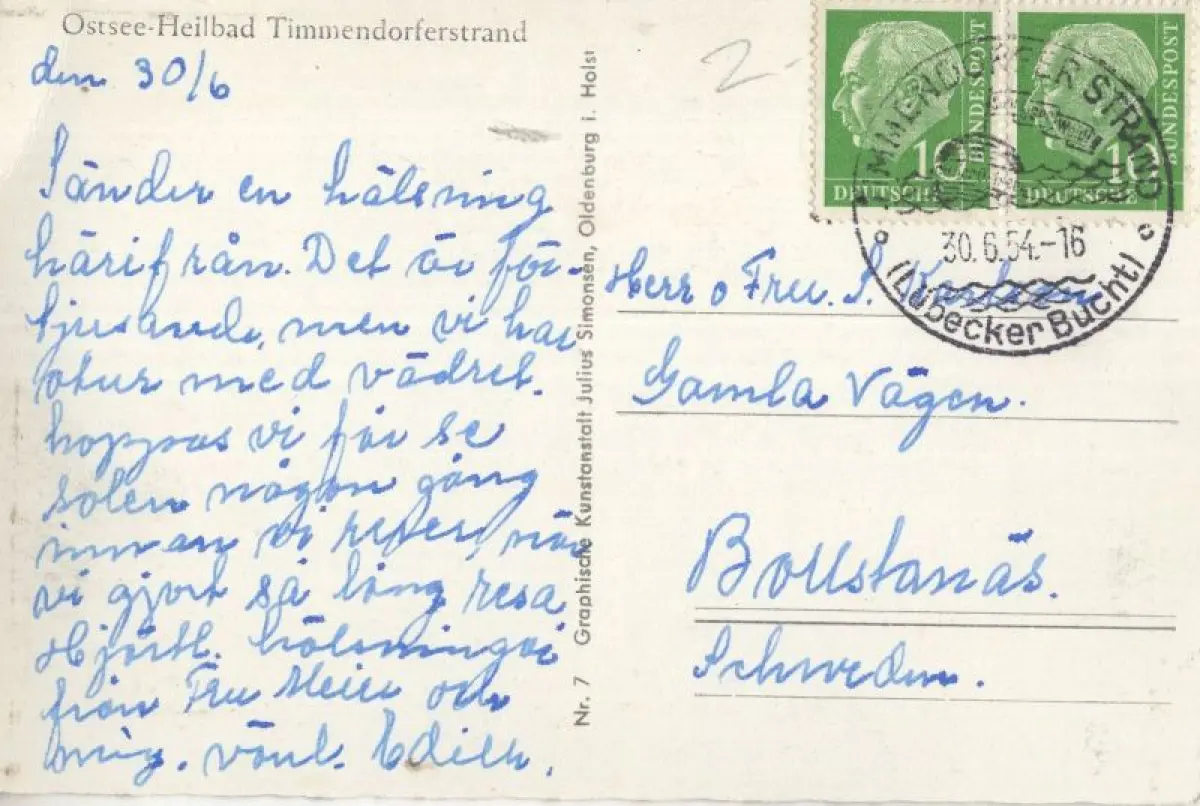 Ostsee-Heilbad Timmendorferstrand
den 30/6
Sänder en hälsning
härifrån. Det är för-
tjusande, men vi har
otur med vädret.
hoppas vi får se
solen någon gång
innan vi reser, när
vi gjort så lång resa
Hjärtl. hälsningar
från Fru Meier och
mig. vänl.
Nr. 7 Graphische Kunstanstalt Julius Simonsen, Oldenburg i. Holst
2-
10 DEUTSCHE BUNDESPOST
10 DEUTSCHE BUNDESPOST
TIMMENDORFER STRAND
30.6.54.-16
(Lübecker Bucht)
Herr o Fru. S.
Gamla Vägen.
Bollstanäs.
Schweden.